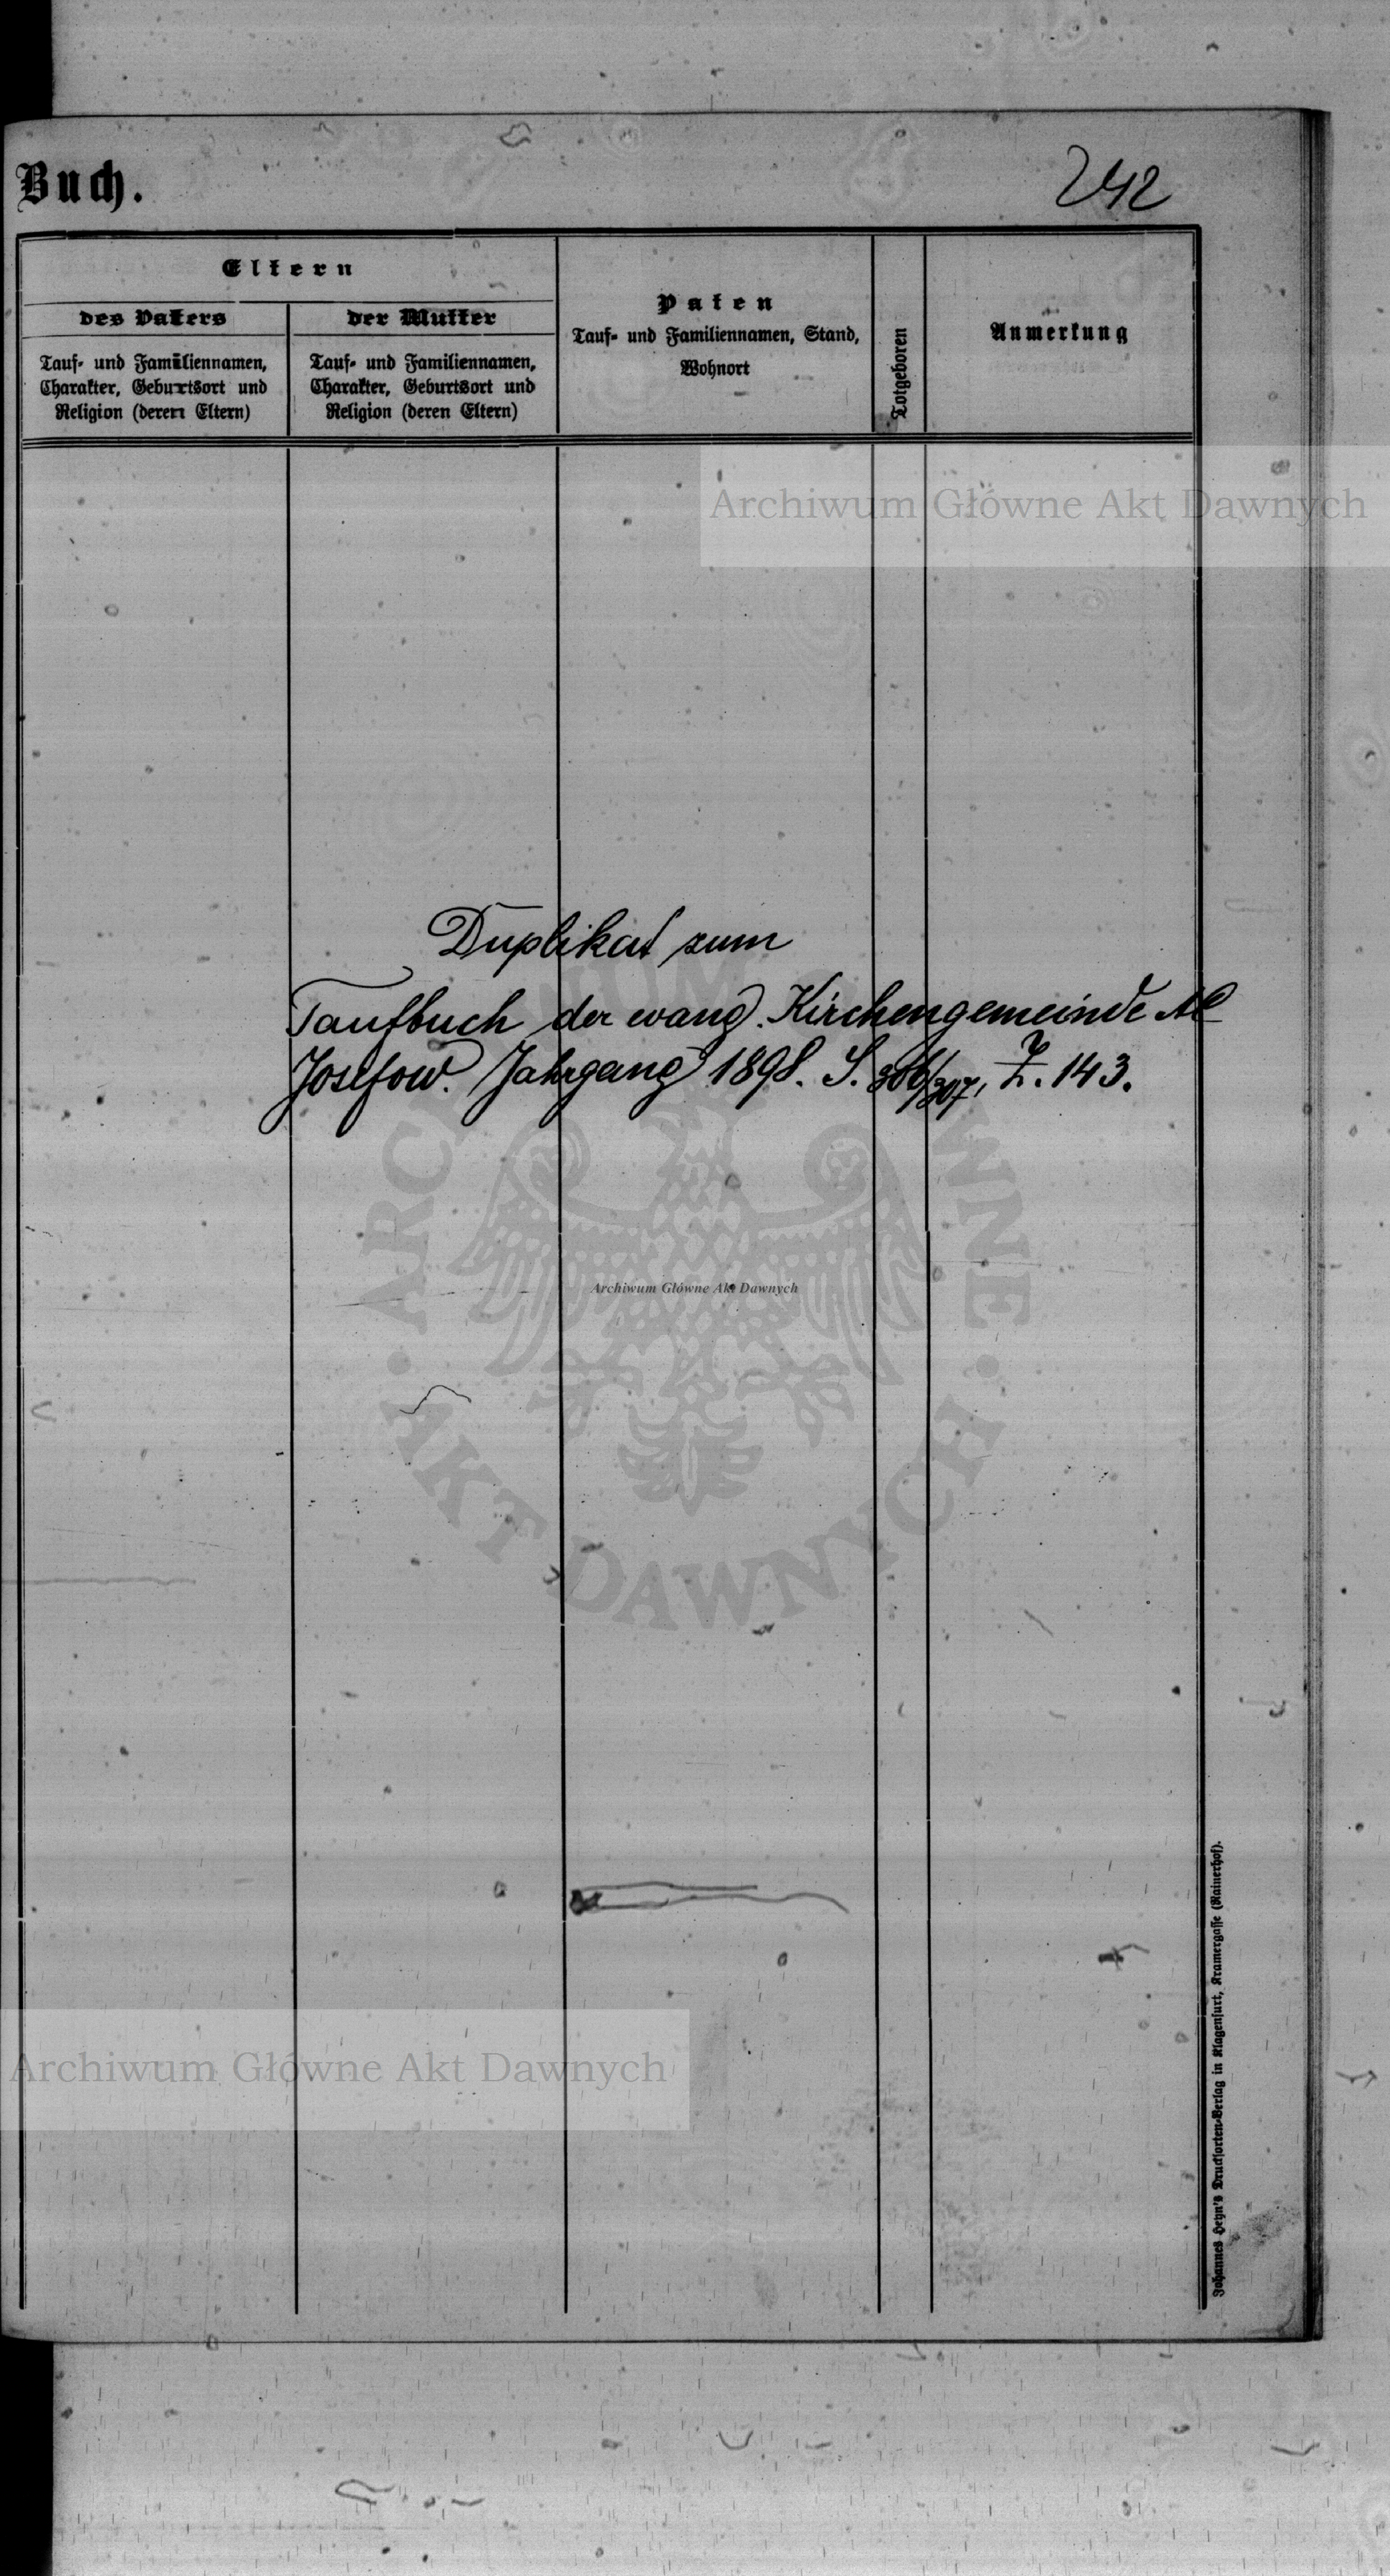 Buch.
242
Eltern
des Vaters
Tauf- und Familiennamen,
Charakter, Geburtsort und
Religion (deren Eltern)
der Mutter
Tauf- und Familiennamen,
Charakter, Geburtsort und
Religion (deren Eltern)
Paten
Tauf- und Familiennamen, Stand,
Wohnort
Totgeboren
Anmerkung
Archiwum Główne Akt Dawnych
Duplikat zum
Taufbuch der evang. Kirchengemeinde AC
Josefow. Jahrgang 1898. S. 306/307, Z. 143.
ARCHIWUM GŁÓWNE AKT DAWNYCH
Archiwum Główne Akt Dawnych
Archiwum Główne Akt Dawnych
Johannes Heyn's Drucksorten-Verlag in Klagenfurt, Kramergasse (Rainerhof).